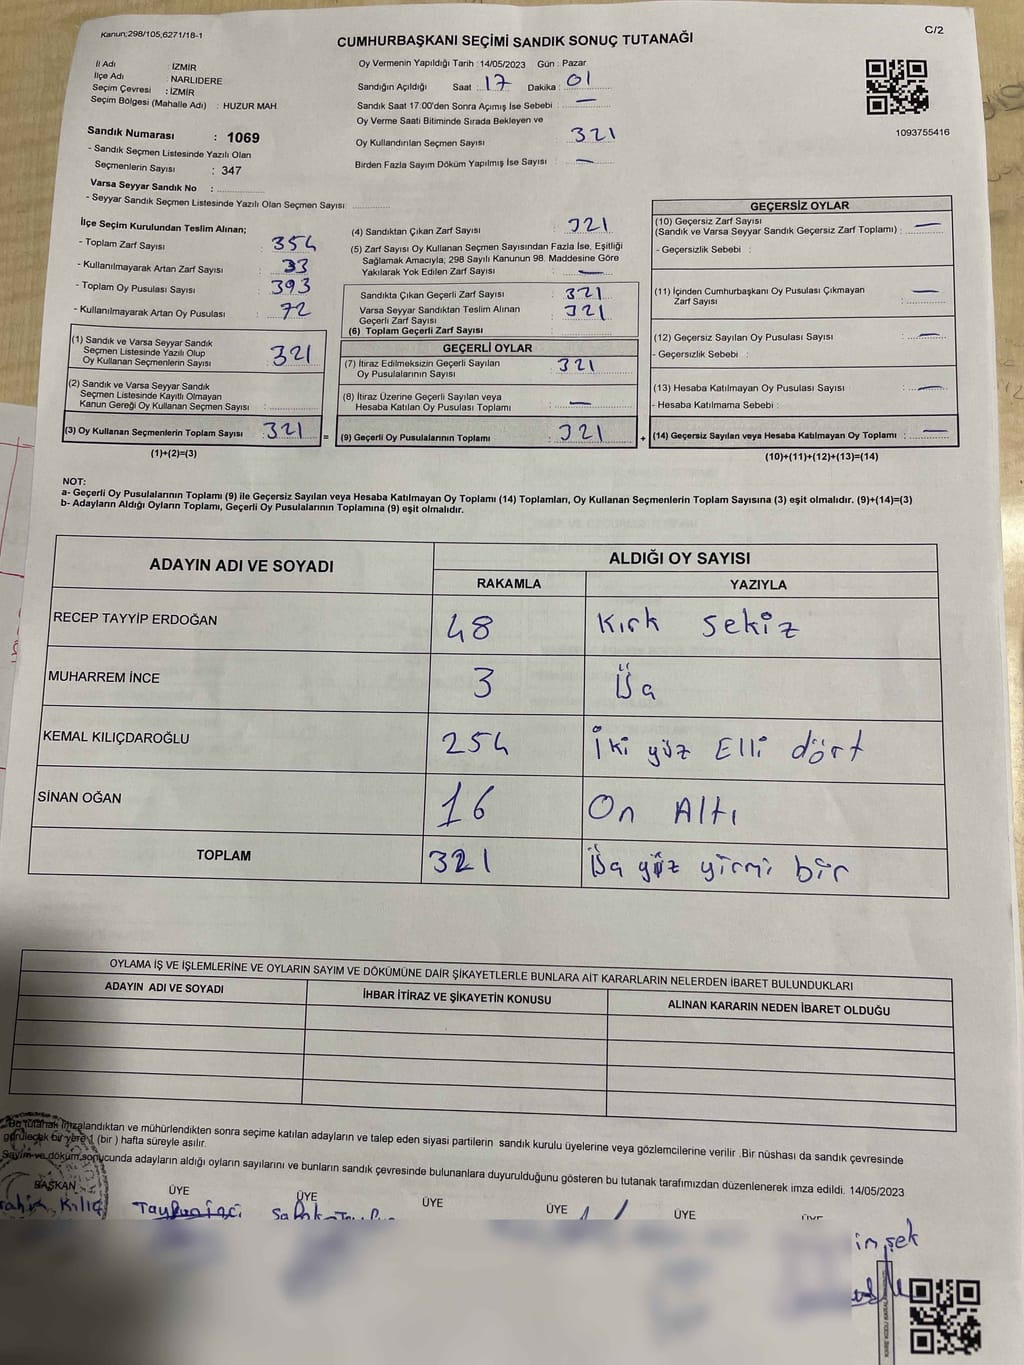 Kanun;298/105,6271/18-1
C/2
CUMHURBAŞKANI SEÇİMİ SANDIK SONUÇ TUTANAĞI
İl Adı : İZMİR
İlçe Adı : NARLIDERE
Seçim Çevresi : İZMİR
Seçim Bölgesi (Mahalle Adı) : HUZUR MAH
Sandık Numarası : 1069
- Sandık Seçmen Listesinde Yazılı Olan
Seçmenlerin Sayısı : 347
Varsa Seyyar Sandık No :
- Seyyar Sandık Seçmen Listesinde Yazılı Olan Seçmen Sayısı:
Oy Vermenin Yapıldığı Tarih : 14/05/2023 Gün : Pazar
Sandığın Açıldığı Saat : 17 Dakika : 01
Sandık Saat 17:00'den Sonra Açımış İse Sebebi : —
Oy Verme Saati Bitiminde Sırada Bekleyen ve
Oy Kullandırılan Seçmen Sayısı : 321
Birden Fazla Sayım Döküm Yapılmış İse Sayısı : —
1093755416
İlçe Seçim Kurulundan Teslim Alınan;
- Toplam Zarf Sayısı : 354
- Kullanılmayarak Artan Zarf Sayısı : 33
- Toplam Oy Pusulası Sayısı : 393
- Kullanılmayarak Artan Oy Pusulası : 72
(1) Sandık ve Varsa Seyyar Sandık
Seçmen Listesinde Yazılı Olup
Oy Kullanan Seçmenlerin Sayısı : 321
(2) Sandık ve Varsa Seyyar Sandık
Seçmen Listesinde Kayıtlı Olmayan
Kanun Gereği Oy Kullanan Seçmen Sayısı :
(3) Oy Kullanan Seçmenlerin Toplam Sayısı : 321
(1)+(2)=(3)
=
(4) Sandıktan Çıkan Zarf Sayısı : 321
(5) Zarf Sayısı Oy Kullanan Seçmen Sayısından Fazla İse, Eşitliği
Sağlamak Amacıyla; 298 Sayılı Kanunun 98. Maddesine Göre
Yakılarak Yok Edilen Zarf Sayısı : —
Sandıkta Çıkan Geçerli Zarf Sayısı : 321
Varsa Seyyar Sandıktan Teslim Alınan : 321
Geçerli Zarf Sayısı
(6) Toplam Geçerli Zarf Sayısı :
GEÇERLİ OYLAR
(7) İtiraz Edilmeksizin Geçerli Sayılan
Oy Pusulalarının Sayısı : 321
(8) İtiraz Üzerine Geçerli Sayılan veya
Hesaba Katılan Oy Pusulası Toplamı : —
(9) Geçerli Oy Pusulalarının Toplamı : 321
+
GEÇERSİZ OYLAR
(10) Geçersiz Zarf Sayısı
(Sandık ve Varsa Seyyar Sandık Geçersiz Zarf Toplamı) : —
- Geçersizlik Sebebi :
(11) İçinden Cumhurbaşkanı Oy Pusulası Çıkmayan
Zarf Sayısı : —
(12) Geçersiz Sayılan Oy Pusulası Sayısı : —
- Geçersizlik Sebebi :
(13) Hesaba Katılmayan Oy Pusulası Sayısı : —
- Hesaba Katılmama Sebebi :
(14) Geçersiz Sayılan veya Hesaba Katılmayan Oy Toplamı : —
(10)+(11)+(12)+(13)=(14)
NOT:
a- Geçerli Oy Pusulalarının Toplamı (9) ile Geçersiz Sayılan veya Hesaba Katılmayan Oy Toplamı (14) Toplamları, Oy Kullanan Seçmenlerin Toplam Sayısına (3) eşit olmalıdır. (9)+(14)=(3)
b- Adayların Aldığı Oyların Toplamı, Geçerli Oy Pusulalarının Toplamına (9) eşit olmalıdır.
ADAYIN ADI VE SOYADI
ALDIĞI OY SAYISI
RAKAMLA YAZIYLA
RECEP TAYYİP ERDOĞAN 48 Kırk Sekiz
MUHARREM İNCE 3 Üç
KEMAL KILIÇDAROĞLU 254 İki yüz Elli dört
SİNAN OĞAN 16 On Altı
TOPLAM 321 Üç yüz yirmi bir
OYLAMA İŞ VE İŞLEMLERİNE VE OYLARIN SAYIM VE DÖKÜMÜNE DAİR ŞİKAYETLERLE BUNLARA AİT KARARLARIN NELERDEN İBARET BULUNDUKLARI
ADAYIN ADI VE SOYADI İHBAR İTİRAZ VE ŞİKAYETİN KONUSU ALINAN KARARIN NEDEN İBARET OLDUĞU
Bu tutanak imzalandıktan ve mühürlendikten sonra seçime katılan adayların ve talep eden siyasi partilerin sandık kurulu üyelerine veya gözlemcilerine verilir .Bir nüshası da sandık çevresinde
görülecek bir yere 1 (bir ) hafta süreyle asılır.
Sayım ve döküm sonucunda adayların aldığı oyların sayılarını ve bunların sandık çevresinde bulunanlara duyurulduğunu gösteren bu tutanak tarafımızdan düzenlenerek imza edildi. 14/05/2023
BAŞKAN ÜYE ÜYE ÜYE ÜYE ÜYE ÜYE
Kılıç